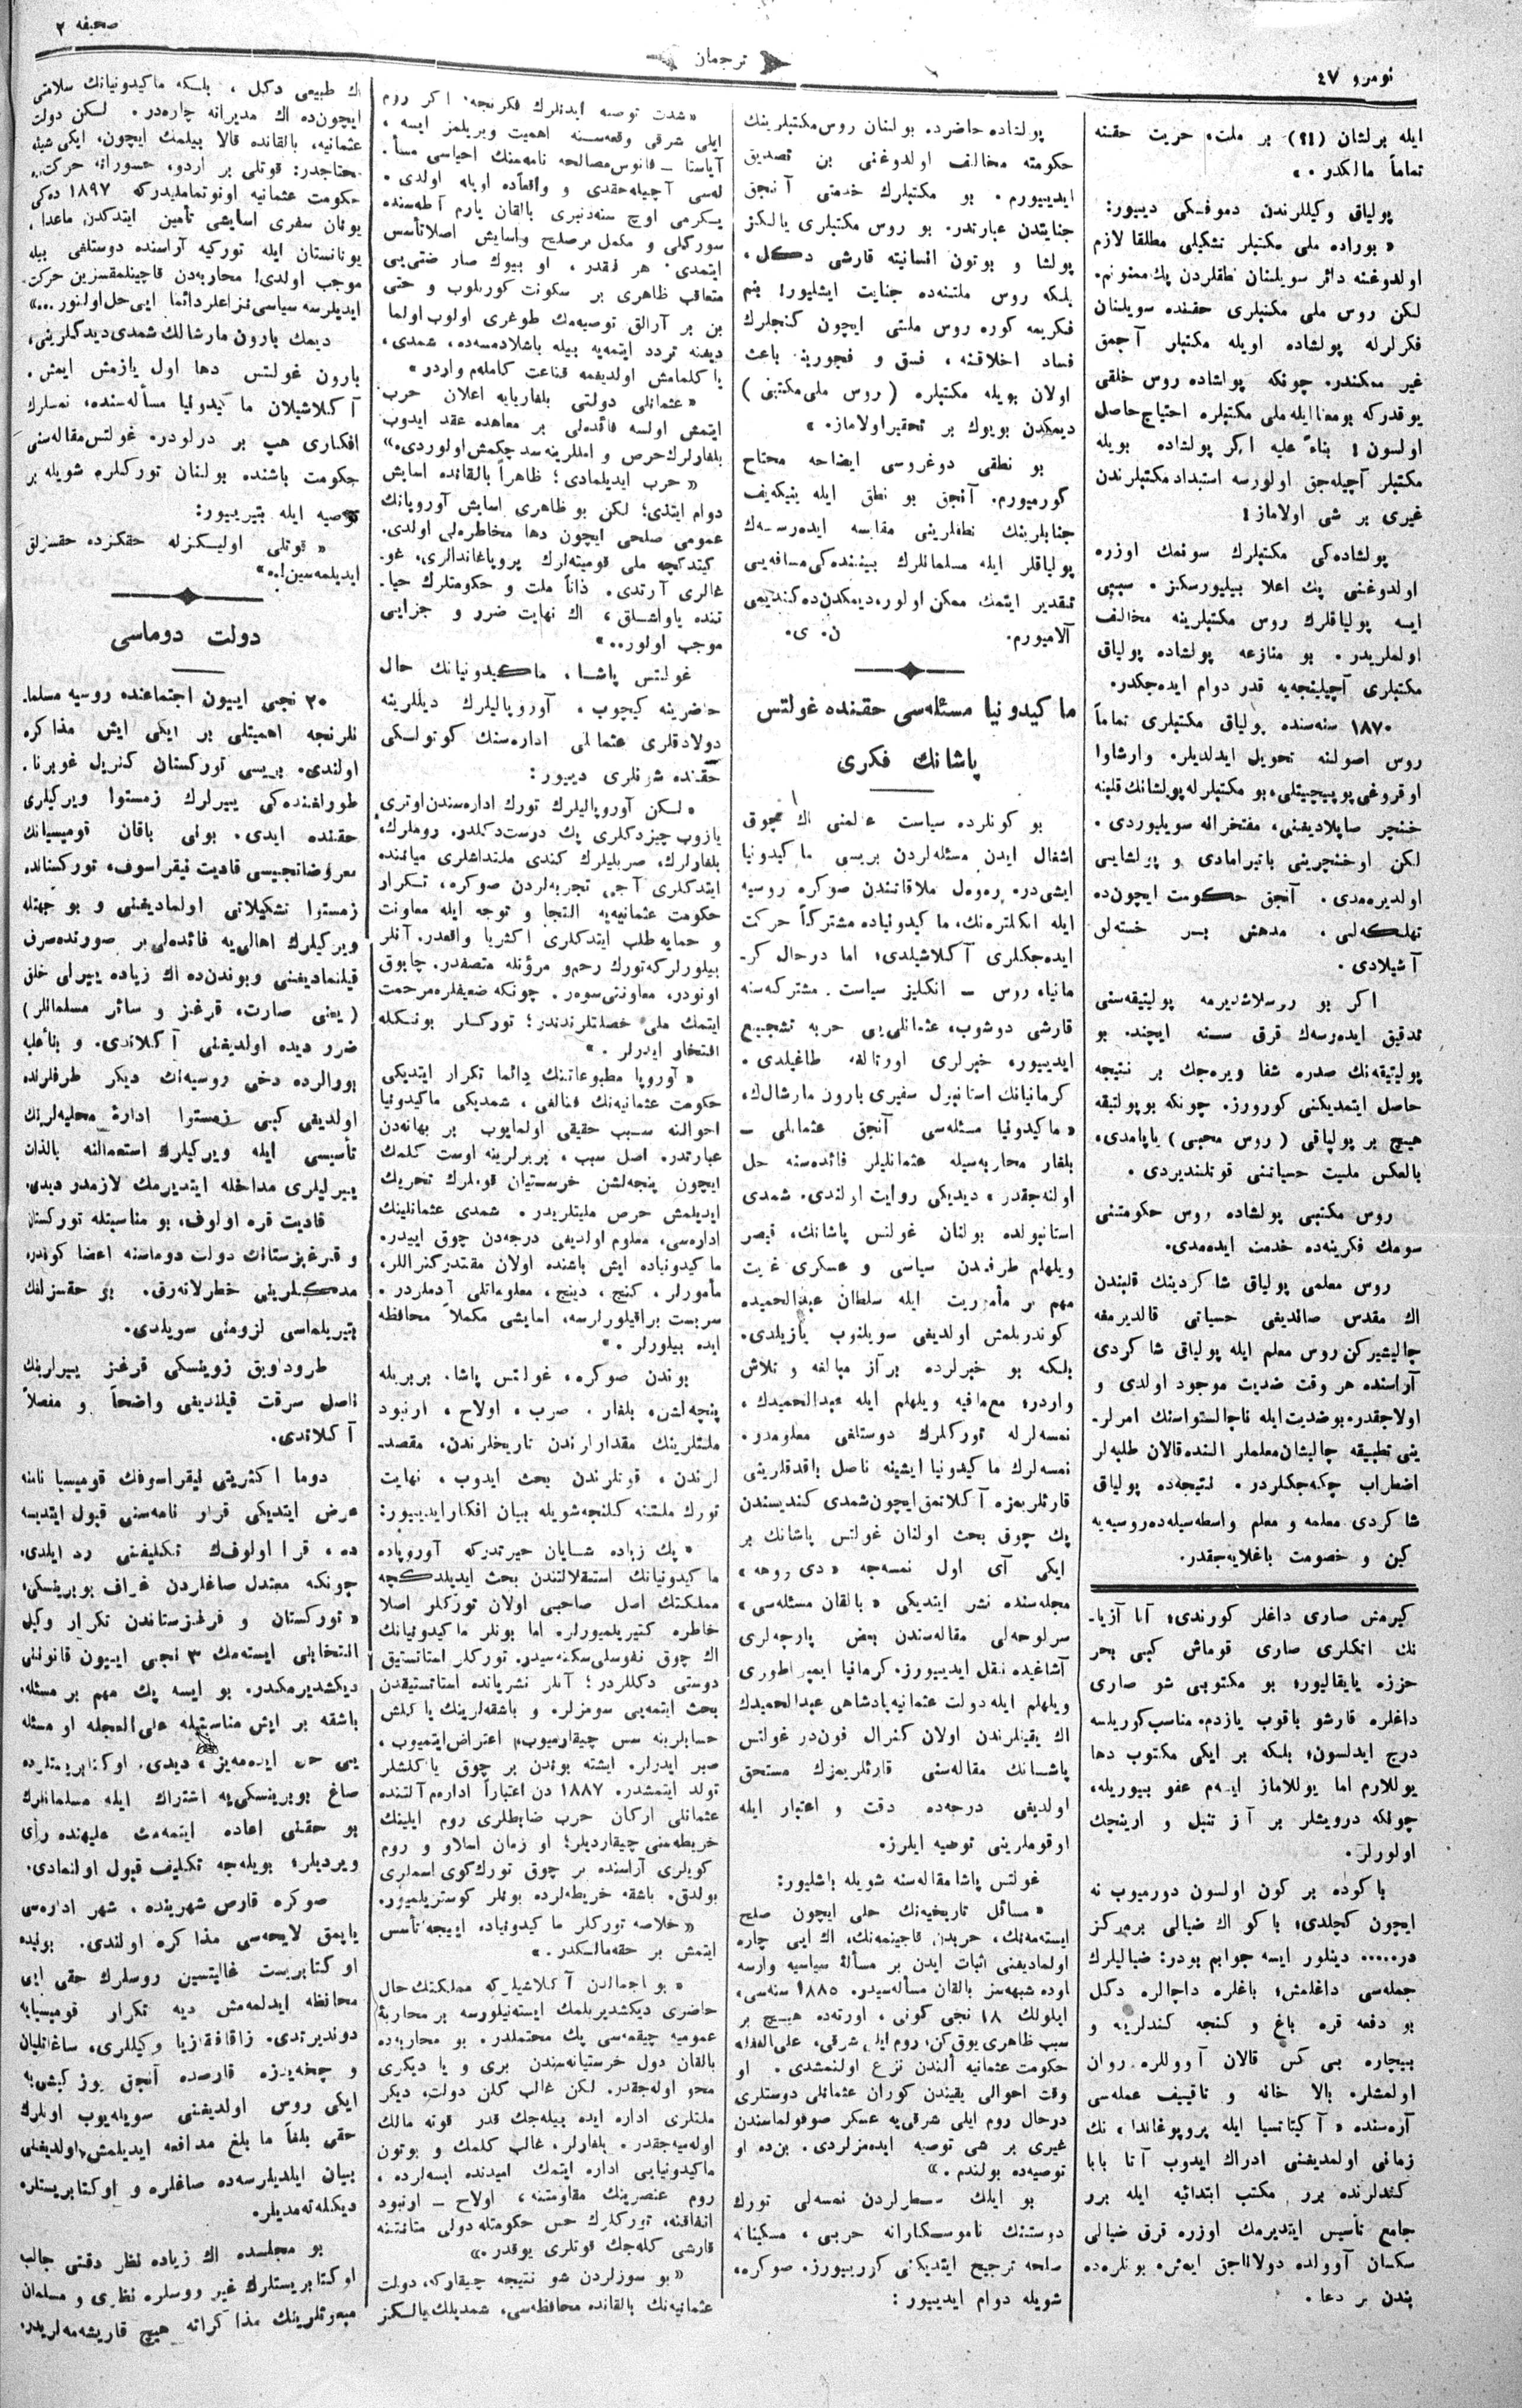 نومرو ٤٧
ترجمان
صحیفه ٢
ایله برلشان (!؟) بر ملت، حریت حقنه
تماماً مالكدر. »
پولیاق وكیللرندن دموفسكی دییور:
« بوراده ملی مكتبلر تشكیلی مطلقا لازم
اولدوغنه دائر سویلنان نطقلردن پك ممنونم.
لكن روس ملی مكتبلری حقنده سویلنان
فكرلرله پولشاده اویله مكتبلر آچمق
غیر ممكندر. چونكه پولشاده روس خلقی
یوقدركه بومعنا ایله ملی مكتبلره احتیاج حاصل
اولسون! بناءً علیه اكر پولشاده بویله
مكتبلر آچیله‌جق اولورسه استبداد مكتبلرندن
غیری بر شی اولاماز!
پولشاده‌كی مكتبلرك سونمك اوزره
اولدوغنی پك اعلا بیلیورسكز. سببی
ایسه پولیاقلرك روس مكتبلرینه مخالف
اولملریدر. بو منازعه پولشاده پولیاق
مكتبلری آچیلینجه‌یه قدر دوام ایده‌جكدر.
١٨٧٠ سنه‌سنده پولیاق مكتبلری تماماً
روس اصولنه تحویل ایدلدیلر. وارشاوا
اوقروغی پوپیچیتلی، بو مكتبلرله پولشانك قلبنه
خنچر صاپلادیغنی، مفتخرانه سویلیوردی.
لكن او خنچرینی باتیرامادی و پولشایی
اولدیره‌مدی. آنجق حكومت ایچون‌ده
تهلكه‌لی، مدهش بر خسته‌لق
آشیلادی.
اكر بو روسلاشدیرمه پولیتیقه‌سنی
تدقیق ایده‌رسه‌ك قرق سنه ایچنده بو
پولیتیقه‌نك صدره شفا ویره‌جك بر نتیجه
حاصل ایتمدیكنی كورورز. چونكه بو پولتیقه
هیچ بر پولیاقی (روس محبی) یاپامدی،
بالعكس ملیت حسیاتنی قوتلندیردی.
روس مكتبی پولشاده روس حكومتنی
سومك فكرینه‌ده خدمت ایده‌مدی.
روس معلمی پولیاق شاكردینك قلبندن
اك مقدس صاندیغی حسیاتی قالدیرمغه
چالیشیركن روس معلم ایله پولیاق شاكردی
آراسنده هر وقت ضدیت موجود اولدی و
اولاجقدر. بو ضدیت ایله ناچالستواسنك امرلر-
ینی تطبیقه چالیشان معلملر الینده قالان طلبه‌لر
اضطراب چكه‌جكلردر. نتیجه‌ده پولیاق
شاكردی معلمه و معلم واسطه‌سیله‌ده روسیه‌یه
كین و خصومت باغلایه‌جقدر.
كیرمش صاری داغلر كورندی؛ آنا آزیا-
نك اتكلری صاری قوماش كیبی بحر
حززه یایقالیور؛ بو مكتوبی شو صاری
داغلره قارشو باقوب یازدم. مناسب كوریلسه
درج ایدلسون؛ بلكه بر ایكی مكتوب دها
یوللارم اما یوللاماز ایسه‌م عفو بیوریله،
چونكه درویشلر بر آز تنبل و ارینچك
اولورلر.
باكوده بر كون اولسون دورمیوب نه
ایچون كچلدی؛ باكو اك ضیالی بر مركز
در..... دینلور ایسه جوابم بودر: ضیالیلرك
جمله‌سی داغلمش؛ باغلره داچالره دكل
بو دفعه قره باغ و كنجه كندلرینه و
بیچاره بی كس قالان آووللره روان
اولمشلر. بالا خانه و ناقییف عمله‌سی
آره‌سنده « آكیتاتسیا ایله پروپوغاندا » نك
زمانی اولمدیغنی ادراك ایدوب آتا بابا
كندلرنده برر مكتب ابتدائیه ایله برر
جامع تأسیس ایتدیرمك اوزره قرق ضیالی
سكسان آوولده دولاناجق ایمش. بونلره‌ده
بندن بر دعا.
پولشاده حاضرده بولنان روس مكتبلرینك
حكومته مخالف اولدوغنی بن تصدیق
ایدییورم. بو مكتبلرك خدمتی آنجق
جنایتدن عبارتدر. بو روس مكتبلری یالكز
پولشا و بوتون انسانیته قارشی دكل،
بلكه روس ملتنه‌ده جنایت ایشلیور! بنم
فكریمه كوره روس ملتی ایچون كنجلرك
فساد اخلاقنه، فسق و فجورینه باعث
اولان بویله مكتبلره (روس ملی مكتبی)
دیمكدن بویوك بر تحقیر اولاماز. »
بو نطقی دوغروسی ایضاحه محتاج
كورمیورم. آنجق بو نطق ایله ینیكه‌یف
جنابلرینك نطقلرینی مقایسه ایده‌رسه‌ك
پولیاقلر ایله مسلمانلرك بیننده‌كی مسافه‌یی
تقدیر ایتمك ممكن اولور، دیمكدن‌ده كندیمی
آلامیورم.
ن. ی.
ماكیدونیا مسئله‌سی حقنده غولتس
پاشانك فكری
بو كونلرده سیاست عالمنی اك چوق
اشغال ایدن مسئله‌لردن بریسی ماكیدونیا
ایشی‌در. ره‌وه‌ل ملاقاتندن صوكره روسیه
ایله انكلتره‌نك، ماكیدونیاده مشتركاً حركت
ایده‌جكلری آكلاشیلدی؛ اما درحال كر-
مانیا، روس ــ انكلیز سیاست مشتركه‌سنه
قارشی دوشوب، عثمانلی‌یی حربه تشجیع
ایدییور، خبرلری اورتالغه طاغیلدی.
كرمانیانك استانبول سفیری بارون مارشالك،
« ماكیدونیا مسئله‌سی آنجق عثمانلی ــ
بلغار محاربه‌سیله عثمانلیلر فائده‌سنه حل
اولنه‌جقدر » دیدیكی روایت اولندی. شمدی
استانبولده بولنان غولتس پاشانك، قیصر
ویلهلم طرفندن سیاسی و عسكری غایت
مهم بر مأموریت ایله سلطان عبدالحمیده
كوندریلمش اولدیغی سویلنوب یازیلدی.
بلكه بو خبرلرده براز مبالغه و تلاش
واردر؛ مع مافیه ویلهلم ایله عبدالحمیدك،
نمسه‌لرله توركلرك دوستلغی معلومدر.
نمسه‌لرك ماكیدونیا ایشینه ناصل باقدقلرینی
قارئلریمزه آكلاتمق ایچون شمدی كندیسندن
پك چوق بحث اولنان غولتس پاشانك بر
ایكی آی اول نمسه‌جه « دی ووهه »
مجله‌سنده نشر ایتدیكی « بالقان مسئله‌سی »
سرلوحه‌لی مقاله‌سندن بعض پارچه‌لری
آشاغیده نقل ایدییورز. كرمانیا ایمپراطوری
ویلهلم ایله دولت عثمانیه پادشاهی عبدالحمیدك
اك یقینلرندن اولان كنرال فون‌در غولتس
پاشانك مقاله‌سنی قارئلریمزك مستحق
اولدیغی درجه‌ده دقت و اعتبار ایله
اوقوملرینی توصیه ایلرز.
غولتس پاشا مقاله‌سنه شویله باشلیور:
« مسائل تاریخیه‌نك حلی ایچون صلح
ایسته‌مه‌نك، حربدن قاچینمه‌نك، اك ایی چاره
اولمادیغنی اثبات ایدن بر مسألهٔ سیاسیه وارسه
اوده شبهه‌سز بالقان مسأله‌سیدر. ١٨٨٥ سنه‌سی،
ایلولك ١٨ نجی كونی، اورته‌ده هیچ بر
سبب ظاهری یوق كن، روم ایلی شرقی، علی الغفله
حكومت عثمانیه ألندن نزع اولنمشدی. او
وقت احوالی یقیندن كوران عثمانلی دوستلری
درحال روم ایلی شرقی‌یه عسكر صوقولماسندن
غیری بر شی توصیه ایده‌مزلردی. بن‌ده او
توصیه‌ده بولندم. »
بو ایلك سطرلردن نمسه‌لی تورك
دوستنك ناموسكارانه حربی، مسكینانه
صلحه ترجیح ایتدیكنی كورییورز. صوكره،
شویله دوام ایدییور:
« شدت توصیه ایدنلرك فكرنجه، اكر روم
ایلی شرقی وقعه‌سنه اهمیت ویریلمز ایسه،
آیاستا ــ فانوس مصالحه نامه‌سنك احیاسی مسأ-
له‌سی آچیله‌جقدی و واقعاًده اویله اولدی.
یكرمی اوچ سنه‌دنبری بالقان یارم آطه‌سنده
سوركلی و مكمل بر صلح و اسایش اصلا تأسس
ایتمدی. هر نقدر، او بیوك صارصنتی‌یی
متعاقب ظاهری بر سكونت كوریلوب و حتی
بن بر آرالق توصیه‌مك طوغری اولوب اولما
دیغنه تردد ایتمه‌یه بیله باشلادمسه‌ده، شمدی،
یاكلمامش اولدیغمه قناعت كامله‌م واردر »
« عثمانلی دولتی بلغاریایه اعلان حرب
ایتمش اولسه فائده‌لی بر معاهده عقد ایدوب
بلغارلرك حرص و املرینه سد چكمش اولوردی. »
« حرب ایدیلمادی؛ ظاهراً بالقانده اسایش
دوام ایتدی؛ لكن بو ظاهری اسایش آوروپانك
عمومی صلحی ایچون دها مخاطره‌لی اولدی.
كیتدكچه ملی قومیته‌لرك پروپاغاندالری، غو-
غالری آرتدی. ذاتاً ملت و حكومتلرك حیا-
تنده یاواشلق، اك نهایت ضرر و جزایی
موجب اولور. »
غولتس پاشا، ماكیدونیانك حال
حاضرینه كیچوب، آوروپالیلرك دیللرینه
دولادقلری عثمانلی اداره‌سنك كوتولسكی
حقنده شونلری دییور:
« لكن آوروپالیلرك تورك اداره‌سندن اوتری
یازوب چیزدكلری پك درست دكلدر. روملرك،
بلغارلرك، صربلیلرك كندی ملتداشلری میاننده
ایتدكلری آجی تجربه‌لردن صوكره، تكرار
حكومت عثمانیه‌یه التجا و توجه ایله معاونت
و حمایه طلب ایتدكلری اكثریا واقعدر. آنلر
بیلورلركه تورك رحم و مرؤتله متصفدر. چابوق
اونودر، معاونتی سوه‌ر. چونكه ضعیفلره مرحمت
ایتمك ملی خصلتلرندندر؛ توركلر بونكله
افتخار ایدرلر. »
« آوروپا مطبوعاتنك دائما تكرار ایتدیكی
حكومت عثمانیه‌نك فنالغی، شمدیكی ماكیدونیا
احوالنه سبب حقیقی اولمایوب بر بهانه‌دن
عبارتدر. اصل سبب، بربرلرینه اوست كلمك
ایچون پنجه‌لشن خرستیان قوملرك تحریك
ایدیلمش حرص ملیتلریدر. شمدی عثمانلینك
اداره‌سی، معلوم اولدیغی درجه‌دن چوق ایییدر.
ماكیدونیاده ایش باشنده اولان مقتدر كنراللر،
مأمورلر، كنج، دینچ، معلوماتلی آدملردر.
سربست براقیلورلرسه، اسایشی مكملاً محافظه
ایده بیلورلر. »
بوندن صوكره، غولتس پاشا، بربریله
پنجه‌لشن، بلغار، صرب، اولاح، ارنبود
ملتلرینك مقدارلرندن تاریخلرندن، مقصد-
لرندن، قوتلرندن بحث ایدوب، نهایت
تورك ملتنه كلنجه شویله بیان افكار ایدییور:
« پك زیاده شایان حیرتدركه آوروپاده
ماكیدونیانك استقلالتندن بحث ایدیلدكچه
مملكتك اصل صاحبی اولان توركلر اصلا
خاطره كتیریلمیورلر. اما بونلر ماكیدونیانك
اك چوق نفوسلی سكنه‌سیدر. توركلر استاتستیق
دوستی دكللردر؛ آنلر نشریاتده استاتستیقدن
بحث ایتمه‌یی سومزلر. و باشقه‌لرینك یاكلش
حسابلرینه سس چیقارمیوب، اعتراض ایتمیوب،
صبر ایدرلر. ایشته بوندن بر چوق یاكلشلر
تولد ایتمشدر. ١٨٨٧ دن اعتباراً اداره‌م آلتنده
عثمانلی اركان حرب ضابطلری روم ایلینك
خریطه‌سنی چیقاردیلر؛ او زمان اسلاو و روم
كویلری آراسنده بر چوق تورك كوی اسملری
بولدق. باشقه خریطه‌لرده بونلر كوستریلمیور.
« خلاصه توركلر ماكیدونیاده اییجه تأسس
ایتمش بر حقه مالكدر. »
« بو اجمالدن آكلاشیلركه مملكتك حال
حاضری دیكشدیریلمك ایسته‌نیلورسه بر محاربهٔ
عمومیه چیقمه‌سی پك محتملدر. بو محاربه‌ده
بالقان دول خرستیانیه‌سندن بری و یا دیكری
محو اوله‌جقدر. لكن غالب كلن دولت، دیكر
ملتلری اداره ایده بیله‌جك قدر قوته مالك
اوله‌میه‌جقدر. بلغارلر، غالب كلمك و بوتون
ماكیدونیایی اداره ایتمك امیدنده ایسه‌لرده،
روم عنصرینك مقاومتنه، اولاح ــ ارنبود
اتفاقنه، توركلرك حس حكومتله دولی متانتنه
قارشی كله‌جك قوتلری یوقدر. »
« بو سوزلردن شو نتیجه چیقاركه، دولت
عثمانیه‌نك بالقانده محافظه‌سی، شمدیلك یالكز
اك طبیعی دكل، بلكه ماكیدونیانك سلامتی
ایچون‌ده اك مدیرانه چاره‌در. لكن دولت
عثمانیه، بالقانده قالا بیلمك ایچون، ایكی شیئه
محتاجدر: قوتلی بر اردو، جسورانه حركت.
حكومت عثمانیه اونوتماملیدركه ١٨٩٧ ده‌كی
یونان سفری اسایشی تأمین ایتدكدن ماعدا،
یونانستان ایله توركیه آراسنده دوستلغی بیله
موجب اولدی! محاربه‌دن قاچینلمقسزین حركت
ایدیلرسه سیاسی نزاعلر دائما ایی حل اولنور...»
دیمك بارون مارشالك شمدی دیدكلرینی،
بارون غولتس دها اول یازمش ایمش.
آكلاشیلان ماكیدونیا مسأله‌سنده، نمسه‌لرك
افكاری هپ بر درلودر. غولتس مقاله‌سنی
حكومت باشنده بولنان توركلره شویله بر
توصیه ایله بیتیرییور:
« قوتلی اولیكزله حقكزده حقسزلق
ایدیلمه‌سین!. »
دولت دوماسی
٢٠ نجی اییون اجتماعنده روسیه مسلما-
نلرنجه اهمیتلی بر ایكی ایش مذاكره
اولندی. بریسی توركستان كنرل غوبرنا-
طورلغنده‌كی ییرلرك زمستوا ویركیلری
حقنده ایدی. بونی باقان قومیسیانك
معروضاتجیسی قادیت نیقراسوف، توركستانده
زمستوا تشكیلاتی اولمادیغنی و بو جهتله
ویركیلرك اهالی‌یه فائده‌لی بر صورتده صرف
قیلنمادیغنی و بوندن‌ده اك زیاده ییرلی خلق
(یعنی صارت، قرغز و سائر مسلمانلر)
ضرر دیده اولدیغنی آكلاتدی. و بناءً علیه
بورالرده دخی روسیه‌نك دیكر طرفلرنده
اولدیغی كیبی زمستوا ادارهٔ محلیه‌لرینك
تأسیسی ایله ویركیلرك استعمالنه بالذات
ییرلیلری مداخله ایتدیرمك لازمدر دیدی.
قادیت قره اولوف، بو مناسبتله توركستان
و قرغزستانك دولت دوماسنه اعضا كوندره
مدكلرینی خطرلاته‌رق، بو حقسزلغك
بتیریلماسی لزومنی سویلدی.
طرودوویق زوینسكی قرغز ییرلرینك
ناصل سرقت قیلندیغنی واضحاً و مفصلاً
آكلاتدی.
دوما اكثریتی نیقراسوفك قومیسیا نامنه
عرض ایتدیكی قرار نامه‌سنی قبول ایتدیسه
ده، قرا اولوفك تكلیفنی رد ایلدی.
چونكه معتدل صاغلردن غراف بوبرینسكی،
« توركستان و قرغزستاندن تكرار وكیل
انتخابنی ایسته‌مك ٣ نجی اییون قانوننی
دیكشدیرمكدر. بو ایسه پك مهم بر مسئله،
باشقه بر ایش مناسبتیله علی العجله او مسئله
یی حل ایده‌مه‌یز، دیدی. اوكتابریستلرده
صاغ بوبرینسكی‌یه اشتراك ایله مسلمانلرك
بو حقنی اعاده ایتمه‌مك علیهنده رأی
ویردیلر؛ بویله‌جه تكلیف قبول اولنمادی.
صوكره قارص شهرینده، شهر اداره‌سی
یاپمق لایحه‌سی مذاكره اولندی. بونده
اوكتابریست غالیتسین روسلرك حقی ایی
محافظه ایدلمه‌مش دیه تكرار قومیسیایه
دوندیرتدی. زاقافقازیا وكیللری، ساغاتلیان
و چخه‌یدزه قارصده آنجق یوز كیشی‌یه
ایكی روس اولدیغنی سویله‌یوب اونلرك
حقی بلغاً ما بلغ مدافعه ایدیلمش اولدیغنی
بیان ایلدیلرسه‌ده صاغلره و اوكتابریستلره
دیكله‌ته‌مدیلر.
بو مجلسده اك زیاده نظر دقتی جالب
اوكتابریستلرك غیر روسلره نظری و مسلمان
مبعوثلرینك مذاكراته هیچ قاریشمه‌مه‌لریدر.